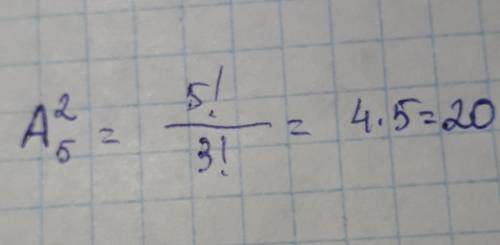 A₅² = 5!/3! = 4.5=20